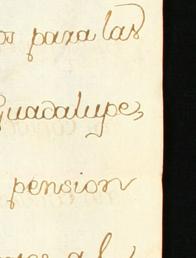 os para las
Guadalupe,
pension